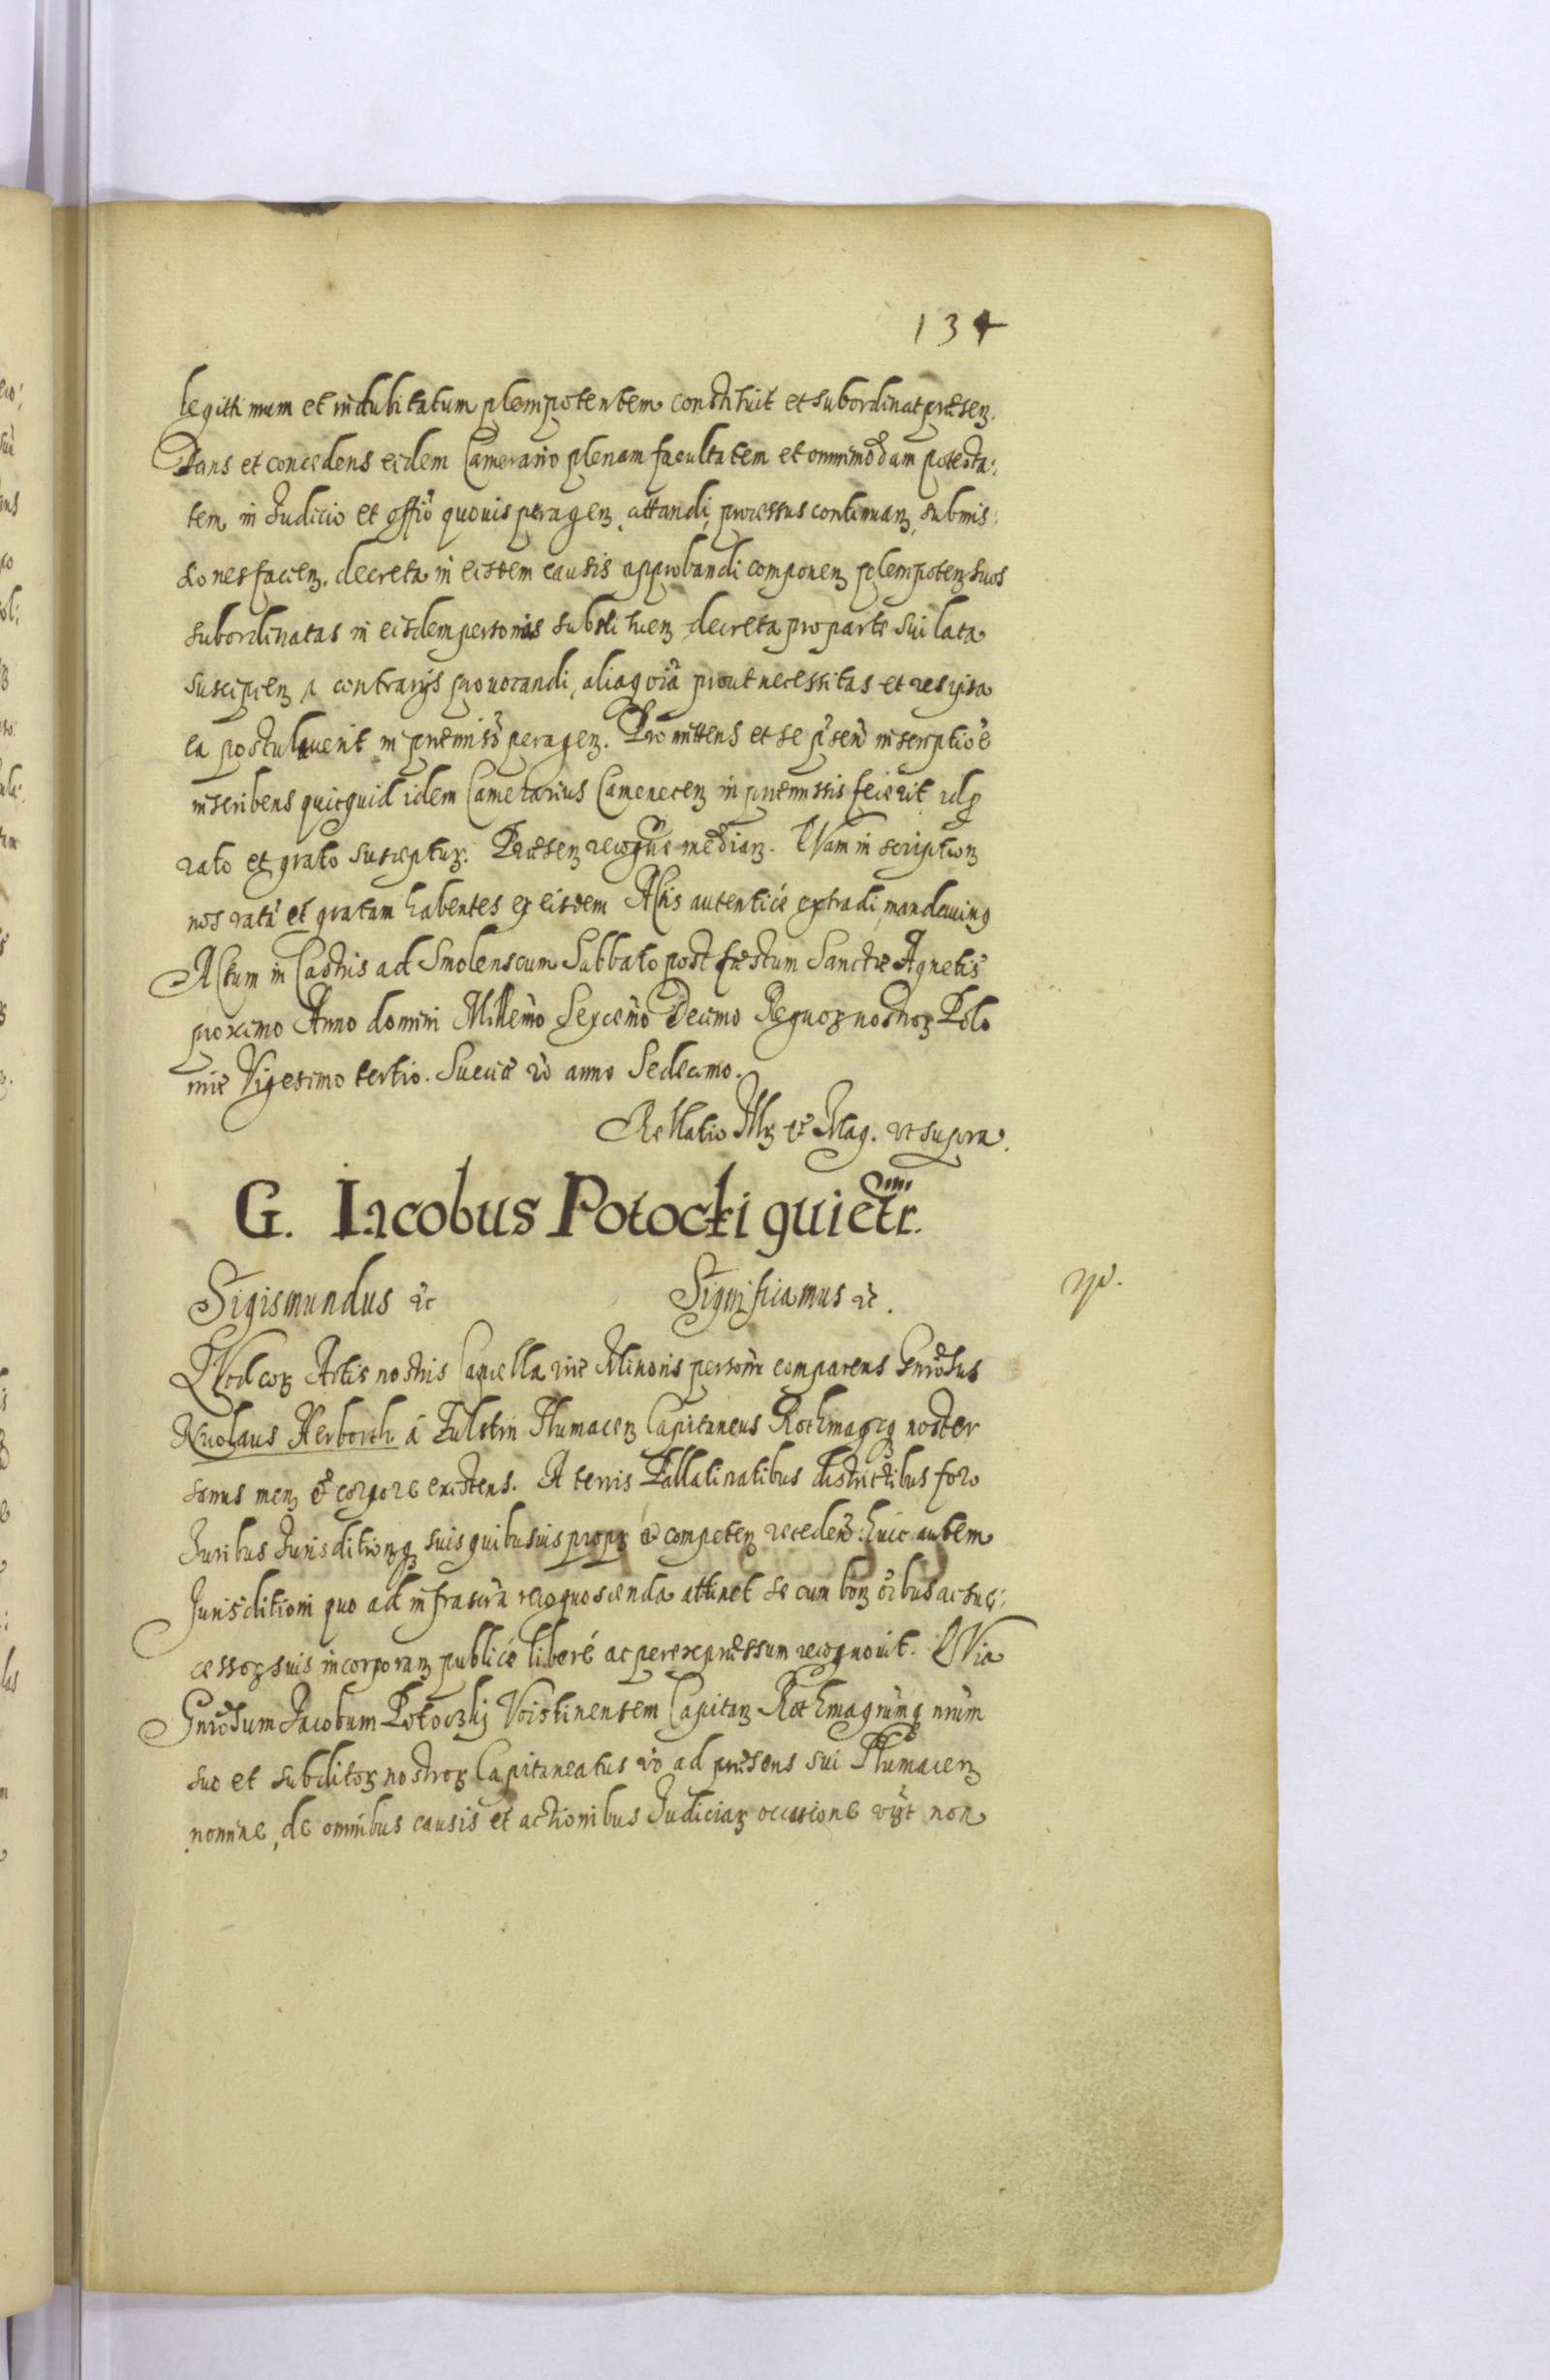 134
legitti mum et indubitatum plenipotentem constituit et subordinat præsenꝫ.
Dans et concedens eidem Camerario plenam facultatem et omnimodam potesta:
tem in Judicio et offiō quouis peragenꝫ, attandi, processus continuanꝫ, submis:
siones facienꝫ. decreta in eisdem causis approbandi componenꝫ plenipotenꝫ suos
subordinatas in eisdem personas substituenꝫ decreta pro parte sui lata
suscipienꝫ a contrarijs prouocandi, aliaq oīa prout necessitas et res ipsa
ea postulauerit in præmissꝫ peragenꝫ. Promittens et se p̄sen inscriptiōe
inscribens quicquid idem Camerarius Camenecenꝫ in præmissis fecerit idq
rato et grato suscepturꝫ. Præsenꝫ recogne medianꝫ. QVam in scriptionꝫ
nos ratā et gratam habentes ex eisdem Actis autenticè extradi mandauimq
Actum in Castris ad Smolenscum Sabbato post fæstum Sanctæ Agnetis
proximo Anno domini Millemo Sexcemo Decimo Regnorꝫ nostrorꝫ Polo
niæ Vigesimo tertio. Sueciæ vo anno Sedecimo.
Rellatio Illꝫ et Mag. vt supra.
G. Iacobus Potocki quietr.
Sigismundus etc Significamus etc.
QVod corꝫ Actis nostris Cancellariæ Minoris personr comparens Gnrosus
Nicolaus Herborth á Fulstin Tlumacenꝫ Capitaneus Rothmagrq noster
sanus menꝫ et corpore existens. A terris Pallatinatibus districtibus foro
Juribus Jurisditionꝫq suis quibusuis proprꝫ et competenꝫ recedenꝫ: huic autem
Jurisditioni quo ad infrascra recognoscenda attinet se cum bonꝫ oībus ac suc:
cessorꝫ suis incorporanꝫ publicè liberé ac per expræssum recognouit. QVia
Gnrosum Jacobum Potoczkij Voistinensem Capitanꝫ Rothmagrumq nrum
suo et subditorꝫ nostrorꝫ Capitaneatus vo ad præsens sui Tlumacenꝫ
nomine, de omnibus causis et actionibus Judiciarꝫ occasione non